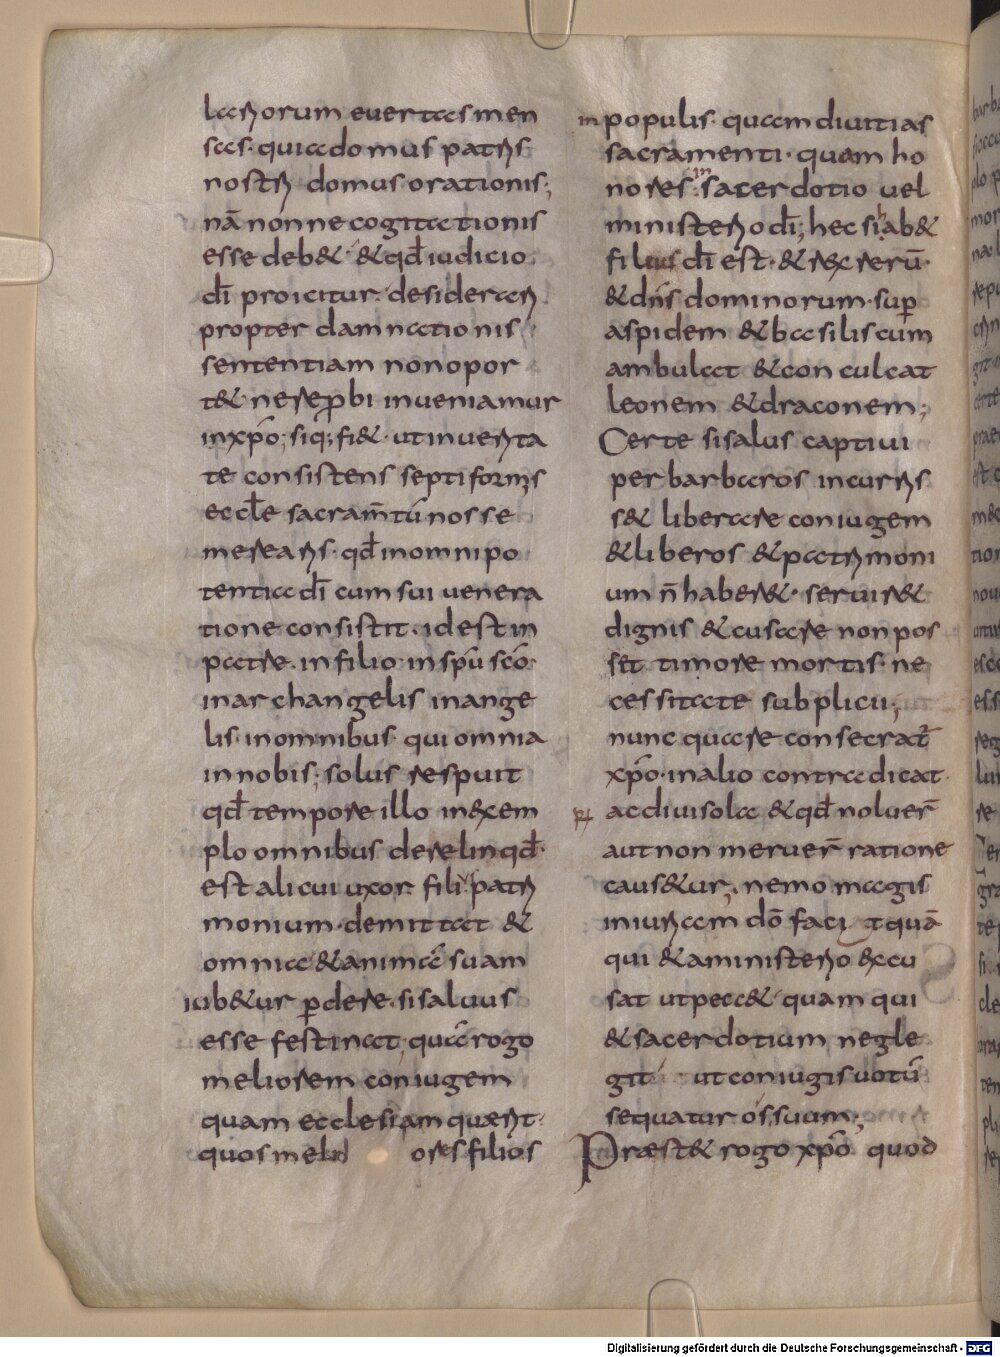 latriorum euertas men
sas. quia domus patris
nostri domus orationis;
nā non ne cogitationis
esse deb& & qđ iudicio
dī proicitur. desiderari
propter damnationis
sententiam non opor
t& ne reprobi inueniamur
in xp̄o; siq; fi& ut in uerita
te consistens septiformis
eccłe sacram̄tū nosse
merearis. qđ in omnipo
tentia dī cum sui uenera
tione consistit. id est in
patre. in filio. in sp̄u sc̄o.
in archangelis in ange
lis. in omnibus qui omnia
in nobis; solus respuit
qđ tempore illo in exem
plo omnibus derelinqđ.
est alicui uxor fili patri
monium. demittat &
omnia & animā suam
iub&ur ꝑdere. si saluus
esse festinat. quā rogo
meliorem coniugem
quam ecclesiam quærit.
quos meli ores filios
in populis. quam diuitias
sacramenti. quam ho
nores. in sacerdotio uel
ministerio dī; hec si hab&
filius dī est. & rex rerū.
& dn̄s dominorum. suꝑ
aspidem & basiliscum
ambulat & conculcat
leonem & draconem;
Certe si salus captiui
per barbaros incurris
s& liberare coniugem
& liberos & patrimoni
um n̄ haber&. seruir&
dignis & cusare non pos
set timore mortis. ne
cessitate subplicii;
nunc quare consecrat̄
xp̄o. in alio contradicat.
ac diuisola & qđ noluer̄
aut non meruer̄ ratione
caus&ur, nemo magis
iniuriam dō faci t quā
qui & aministerio &xcu
sat ut pecc& quam qui
& sacerdotium negle
git ut coniugis uotū
sequatur os, suum;
Præst& rogo xp̄o quod
Digitalisierung gefördert durch die Deutsche Forschungsgemeinschaft - DFG